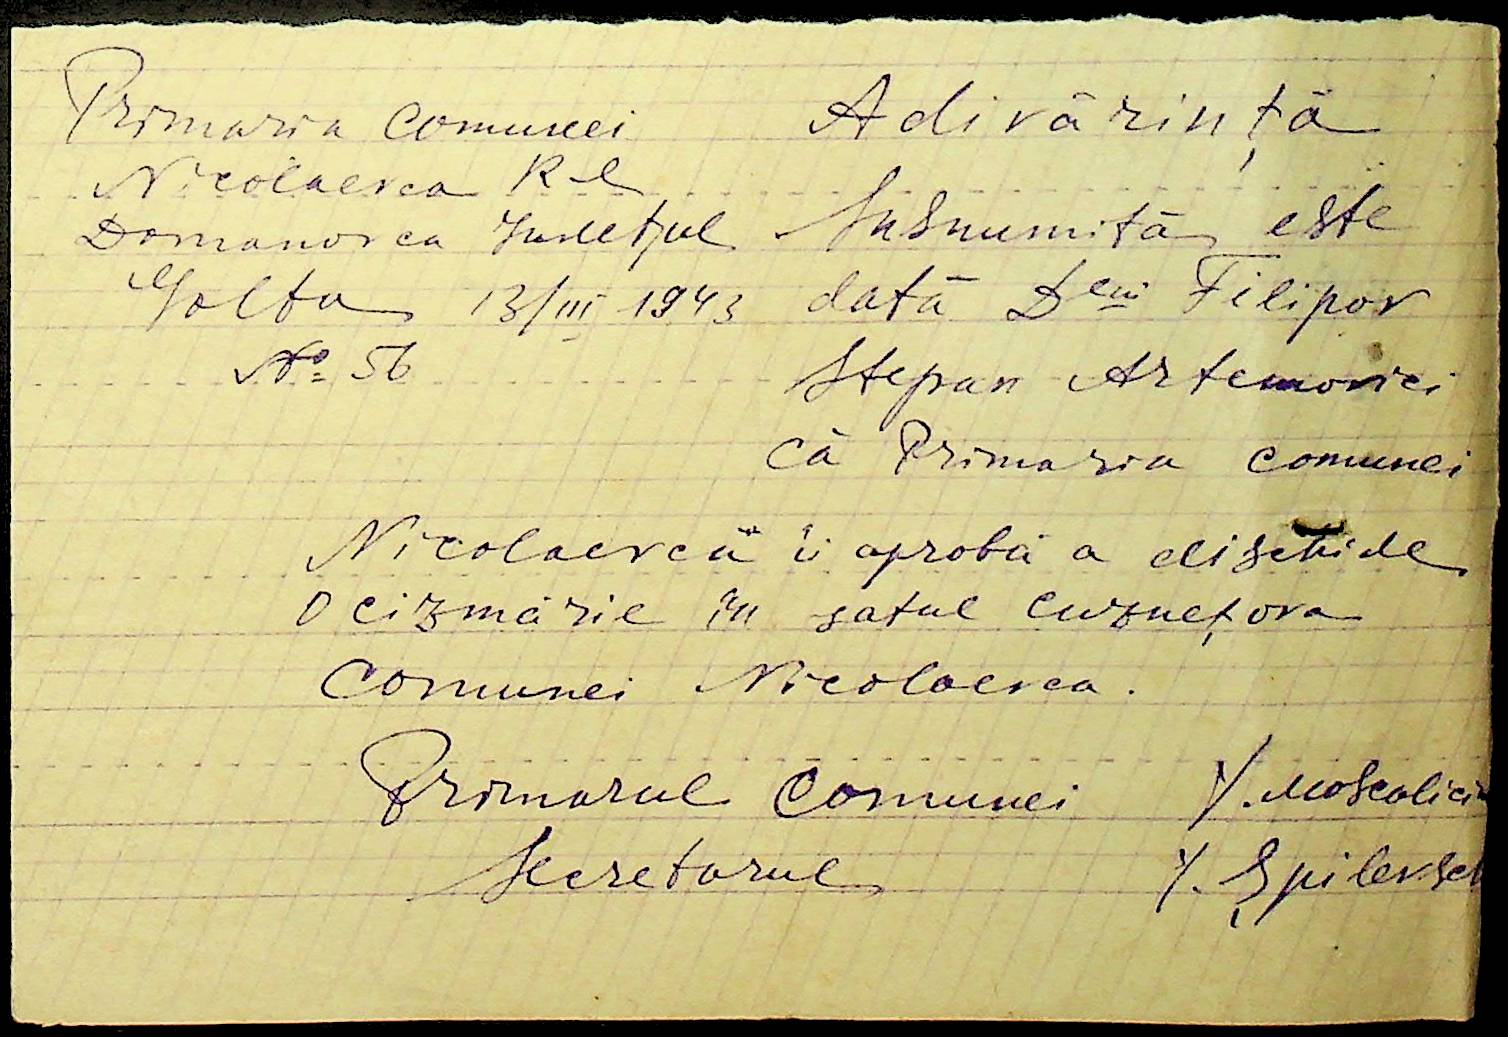 Primaria Comunei
Nicolaevca R-l
Domanovca Județul
Golta 13/III 1943
№ 56
Adivărință
Susnumită este
dată Dlui Filipov
Stepan Artemovici
că Primaria comunei
Nicolaevcă îi aprobă a dischide
o cizmărie în satul Cuznețova
Comunei Nicolaevca.
Primarul Comunei
Secretarul